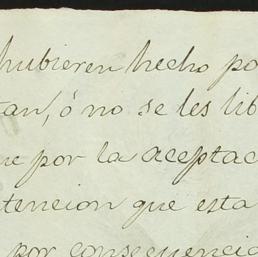 hubieren hecho po
tan, ó no se les lib
ue por la aceptac
tencion que esta
por consecuencia